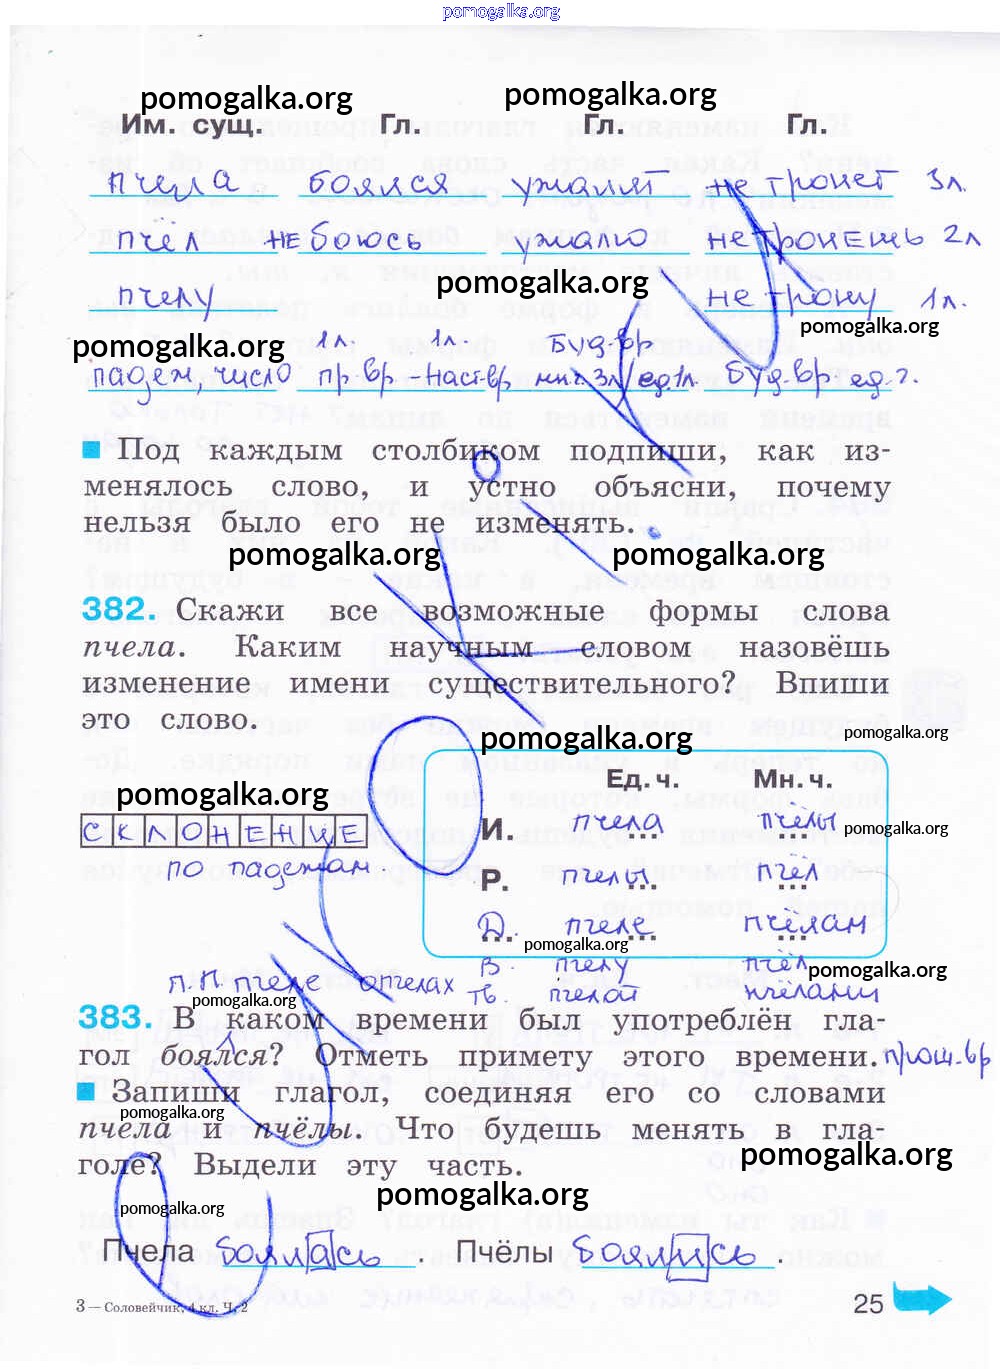 pomogalka.org
pomogalka.org pomogalka.org
Им. сущ. Гл. Гл. Гл.
пчела боялся ужалит не тронет 3л.
пчёл не боюсь ужалю не тронешь 2л
pomogalka.org
пчелу не трону 1л.
pomogalka.org
1л. 1л. Буд-вр
pomogalka.org
падеж, число пр.вр - наст-вр мн.г.3л/ед.1л. Буд-вр ед.г.
Под каждым столбиком подпиши, как из-
менялось слово, и устно объясни, почему
нельзя было его не изменять.
pomogalka.org pomogalka.org
382. Скажи все возможные формы слова
пчела. Каким научным словом назовёшь
изменение имени существительного? Впиши
это слово.
pomogalka.org
pomogalka.org
Ед. ч. Мн. ч.
pomogalka.org
СКЛОНЕНИЕ И. пчела пчёлы
pomogalka.org
по падежам Р. пчелы пчёл
Д. пчеле пчёлам
pomogalka.org
В. пчелу пчёл
pomogalka.org
П.п. пчеле о пчёлах Тв. пчелой пчёлами
pomogalka.org
383. В каком времени был употреблён гла-
гол боялся? Отметь примету этого времени. прош.вр
Запиши глагол, соединяя его со словами
pomogalka.org
пчела и пчёлы. Что будешь менять в гла-
голе? Выдели эту часть.
pomogalka.org
pomogalka.org
pomogalka.org
Пчела боялась. Пчёлы боялись.
3 — Соловейчик, 4 кл. Ч. 2 25